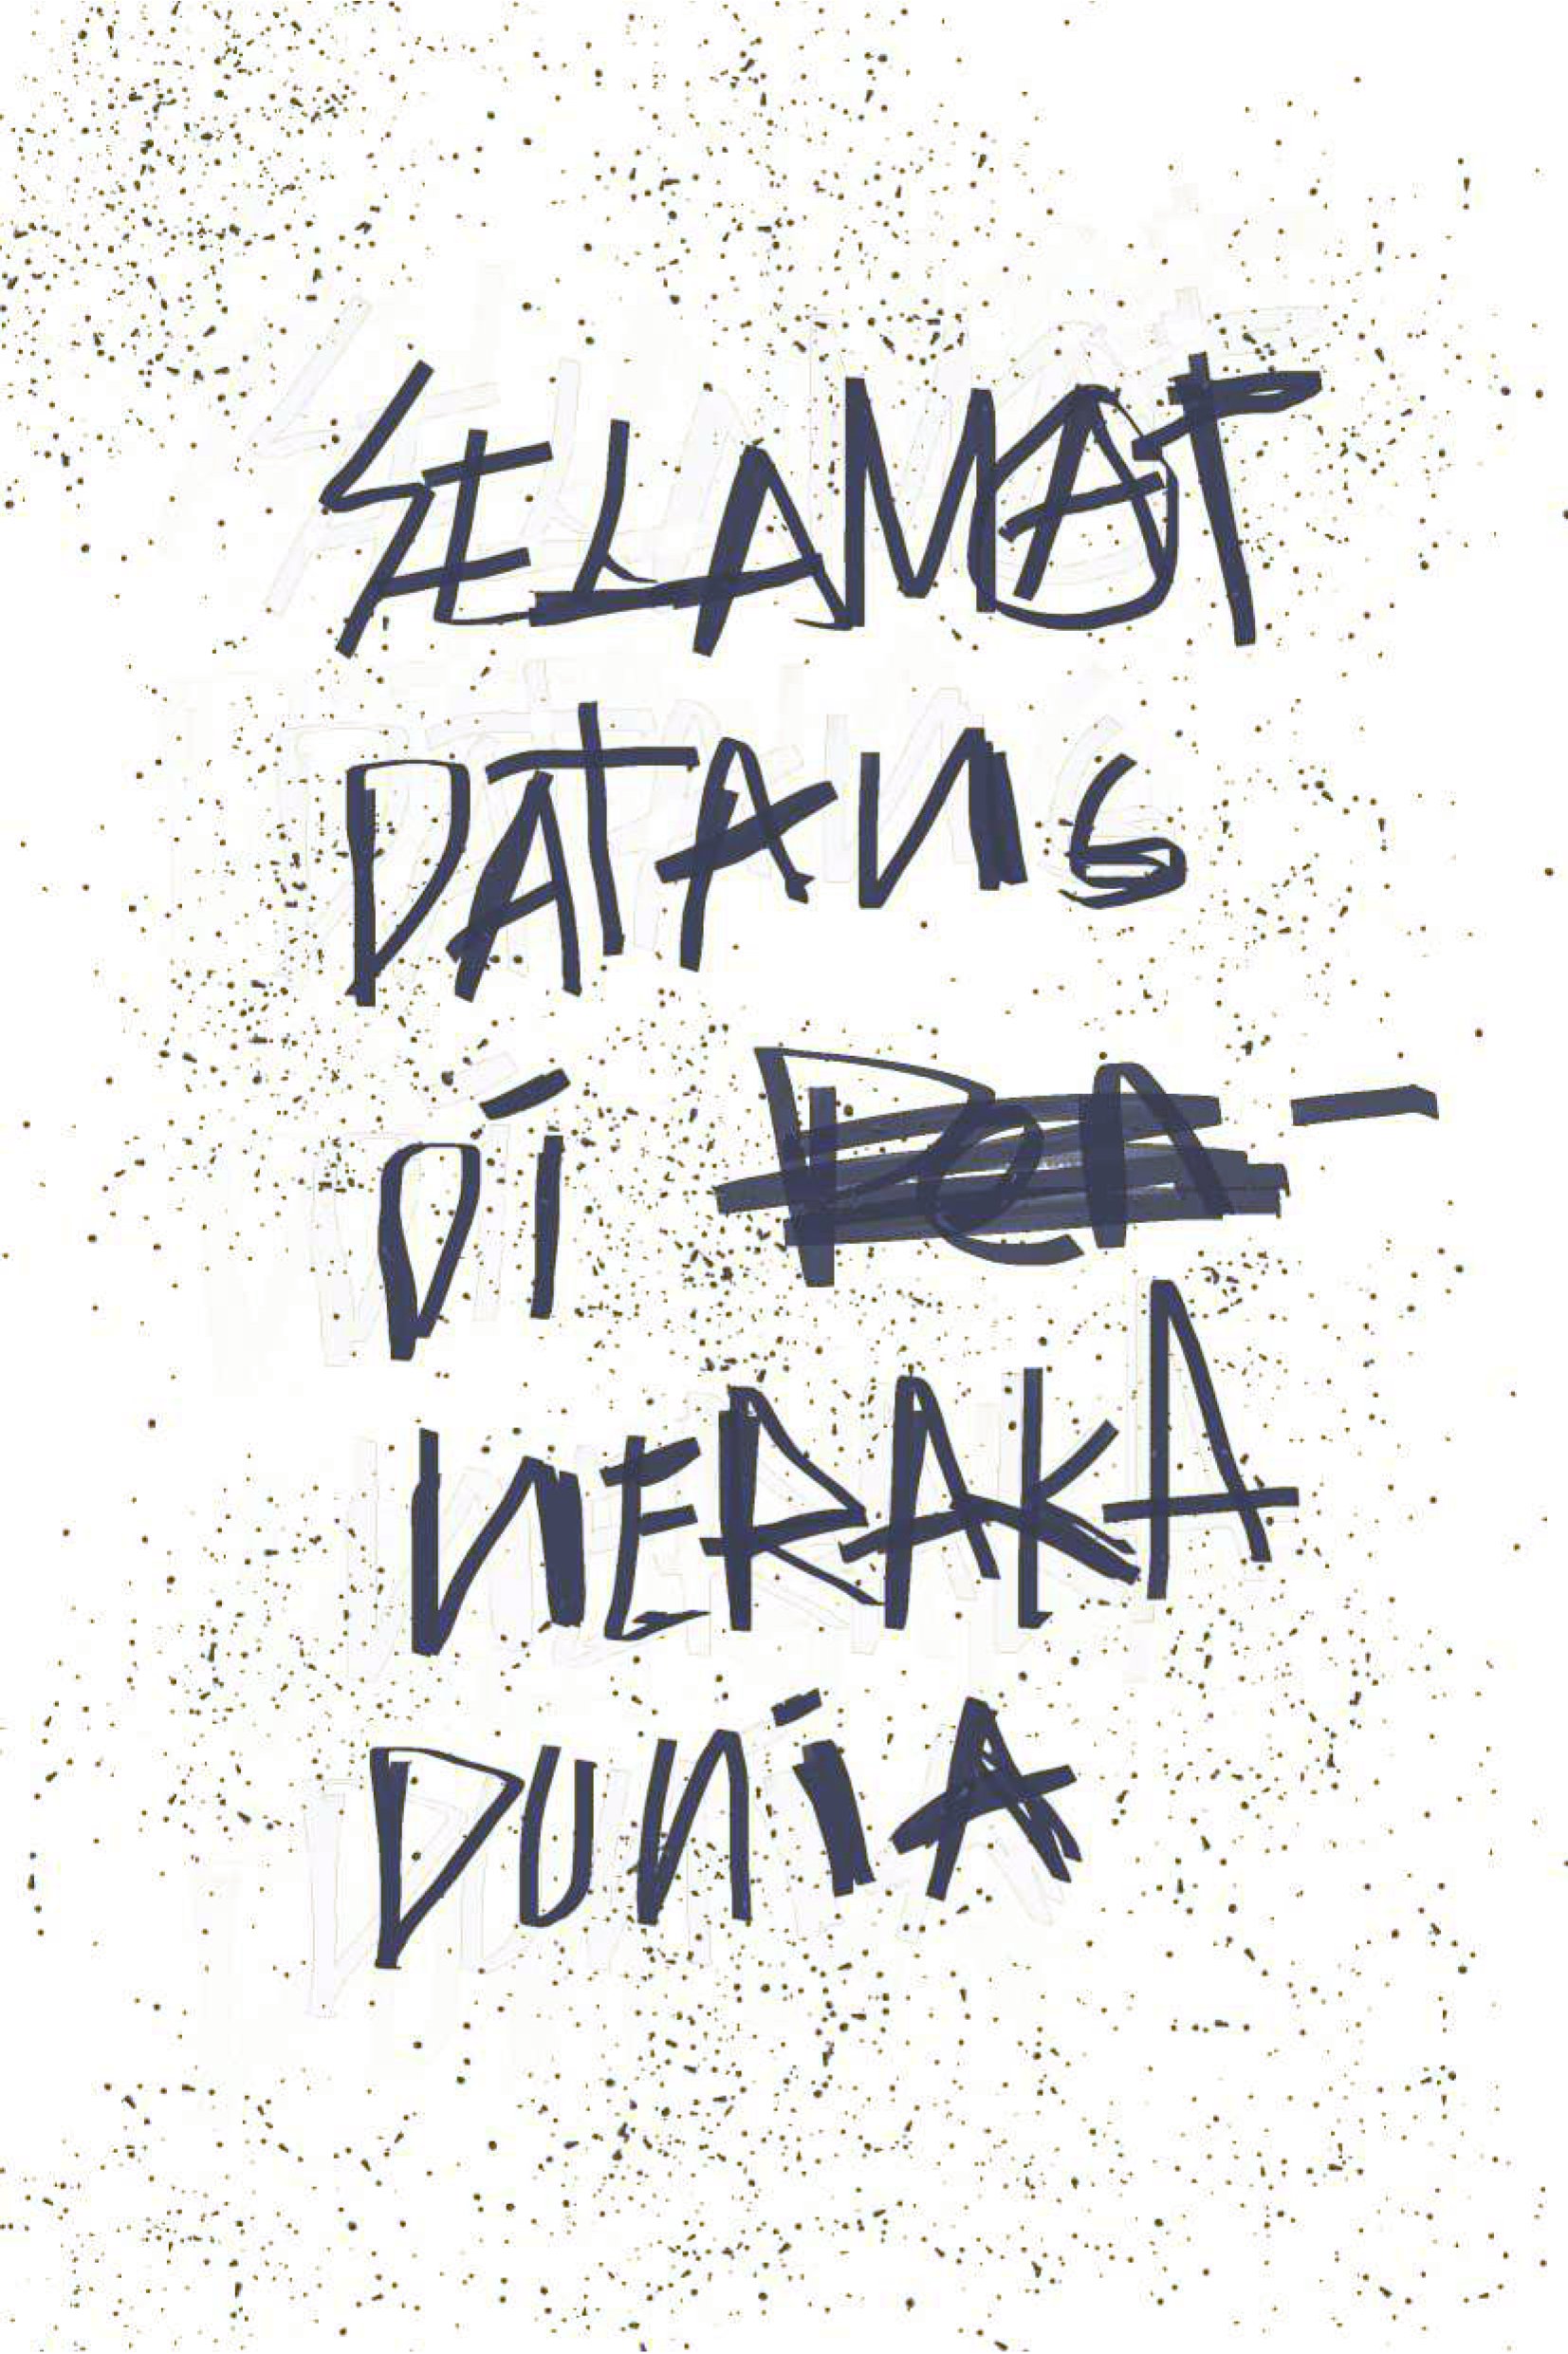 SELAMAT
DATANG
Di Pen-
NERAKA
DUNiA